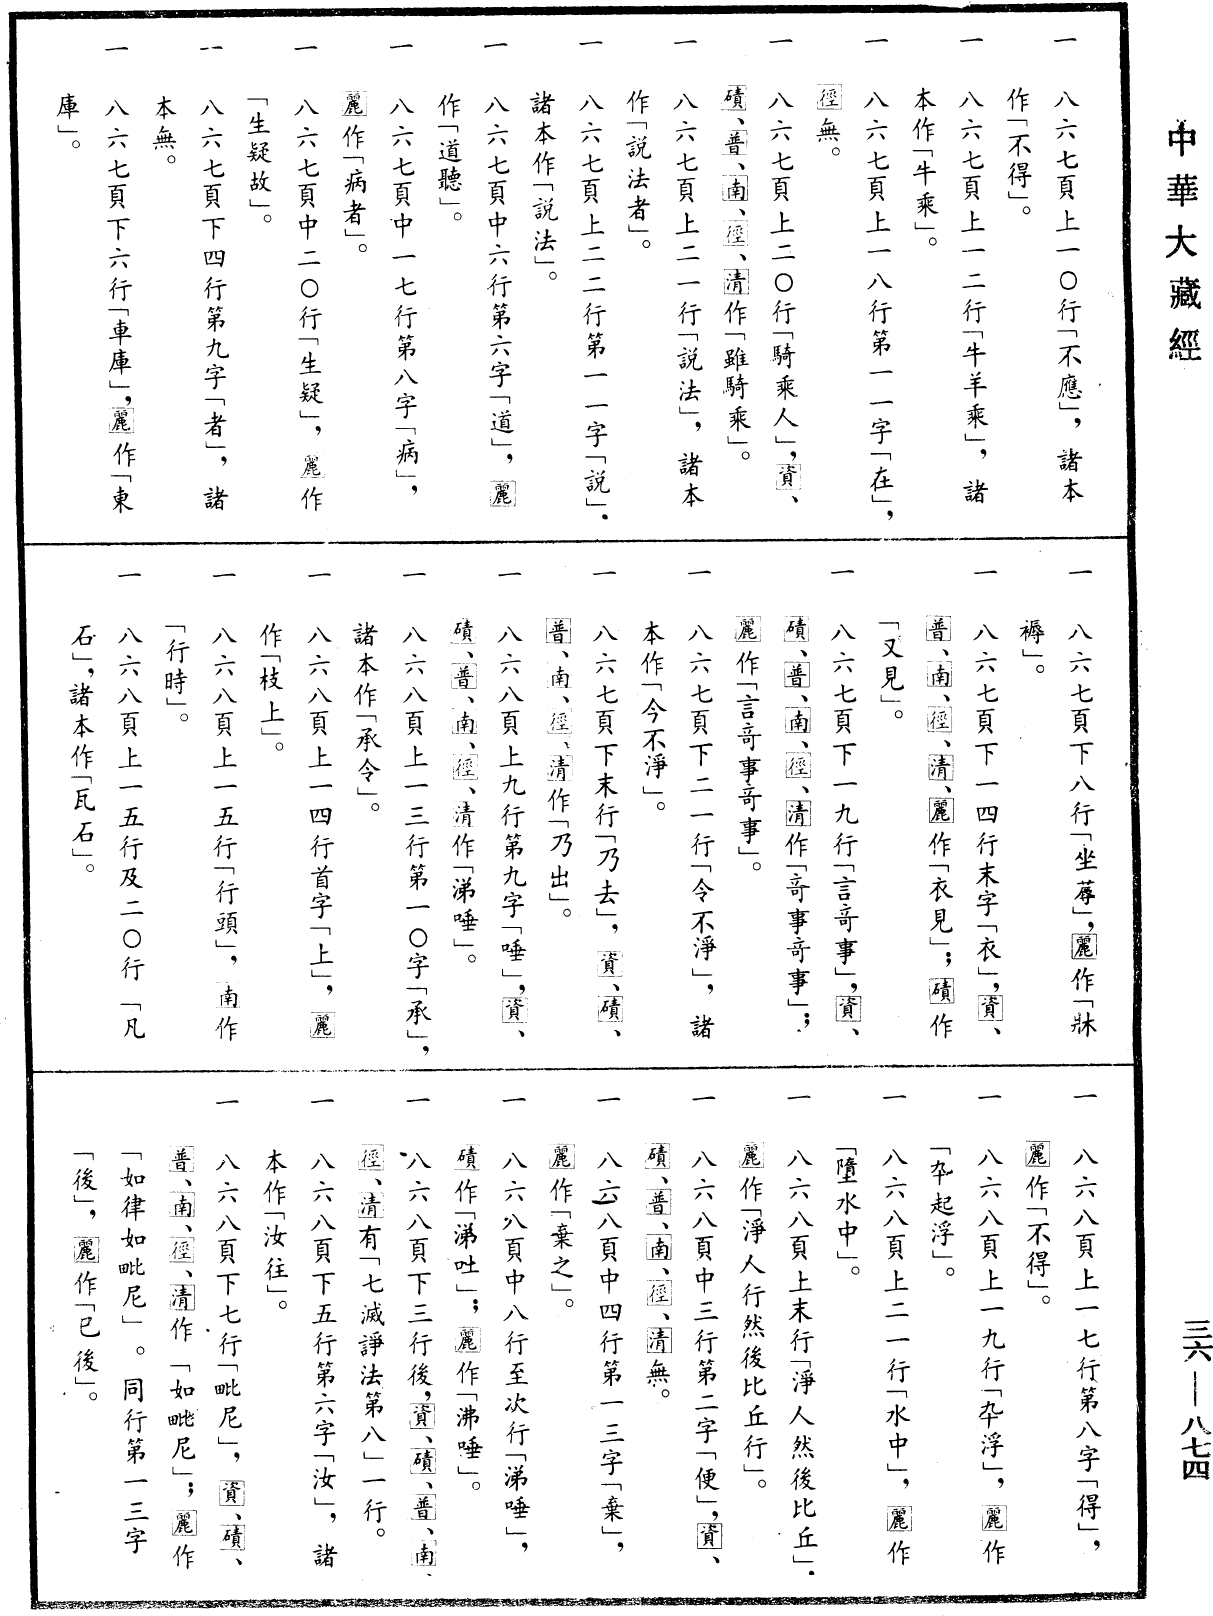 中華大藏經
一　八六七頁上一〇行「不應」，諸本
作「不得」。
一　八六七頁上一二行「牛羊乘」，諸
本作「牛乘」。
一　八六七頁上一八行第一一字「在」，
徑無。
一　八六七頁上二〇行「騎乘人」，資、
磧、普、南、徑、清作「雖騎乘」。
一　八六七頁上二一行「説法」，諸本
作「説法者」。
一　八六七頁上二二行第一一字「説」，
諸本作「説法」。
一　八六七頁中六行第六字「道」，麗
作「道聽」。
一　八六七頁中一七行第八字「病」，
麗作「病者」。
一　八六七頁中二〇行「生疑」，麗作
「生疑故」。
一　八六七頁下四行第九字「者」，諸
本無。
一　八六七頁下六行「車庫」，麗作「東
庫」。
一　八六七頁下八行「坐蓐」，麗作「牀
褥」。
一　八六七頁下一四行末字「衣」，資、
普、南、徑、清、麗作「衣見」；磧作
「又見」。
一　八六七頁下一九行「言竒事」，資、
磧、普、南、徑、清作「竒事竒事」；
麗作「言竒事竒事」。
一　八六七頁下二一行「令不淨」，諸
本作「今不淨」。
一　八六七頁下末行「乃去」，資、磧、
普、南、徑、清作「乃出」。
一　八六八頁上九行第九字「唾」，資、
磧、普、南、徑、清作「涕唾」。
一　八六八頁上一三行第一〇字「承」，
諸本作「承令」。
一　八六八頁上一四行首字「上」，麗
作「枝上」。
一　八六八頁上一五行「行頭」，南作
「行時」。
一　八六八頁上一五行及二〇行「凡
石」，諸本作「瓦石」。
一　八六八頁上一七行第八字「得」，
麗作「不得」。
一　八六八頁上一九行「卒浮」，麗作
「卒起浮」。
一　八六八頁上二一行「水中」，麗作
「墮水中」。
一　八六八頁上末行「淨人然後比丘」，
麗作「淨人行然後比丘行」。
一　八六八頁中三行第二字「便」，資、
磧、普、南、徑、清無。
一　八六八頁中四行第一三字「棄」，
麗作「棄之」。
一　八六八頁中八行至次行「涕唾」，
磧作「涕吐」；麗作「沸唾」。
一　八六八頁下三行後，資、磧、普、南、
徑、清有「七滅諍法第八」一行。
一　八六八頁下五行第六字「汝」，諸
本作「汝往」。
一　八六八頁下七行「毗尼」，資、磧、
普、南、徑、清作「如毗尼」；麗作
「如律如毗尼」。同行第一三字
「後」，麗作「已後」。
三六—八七四